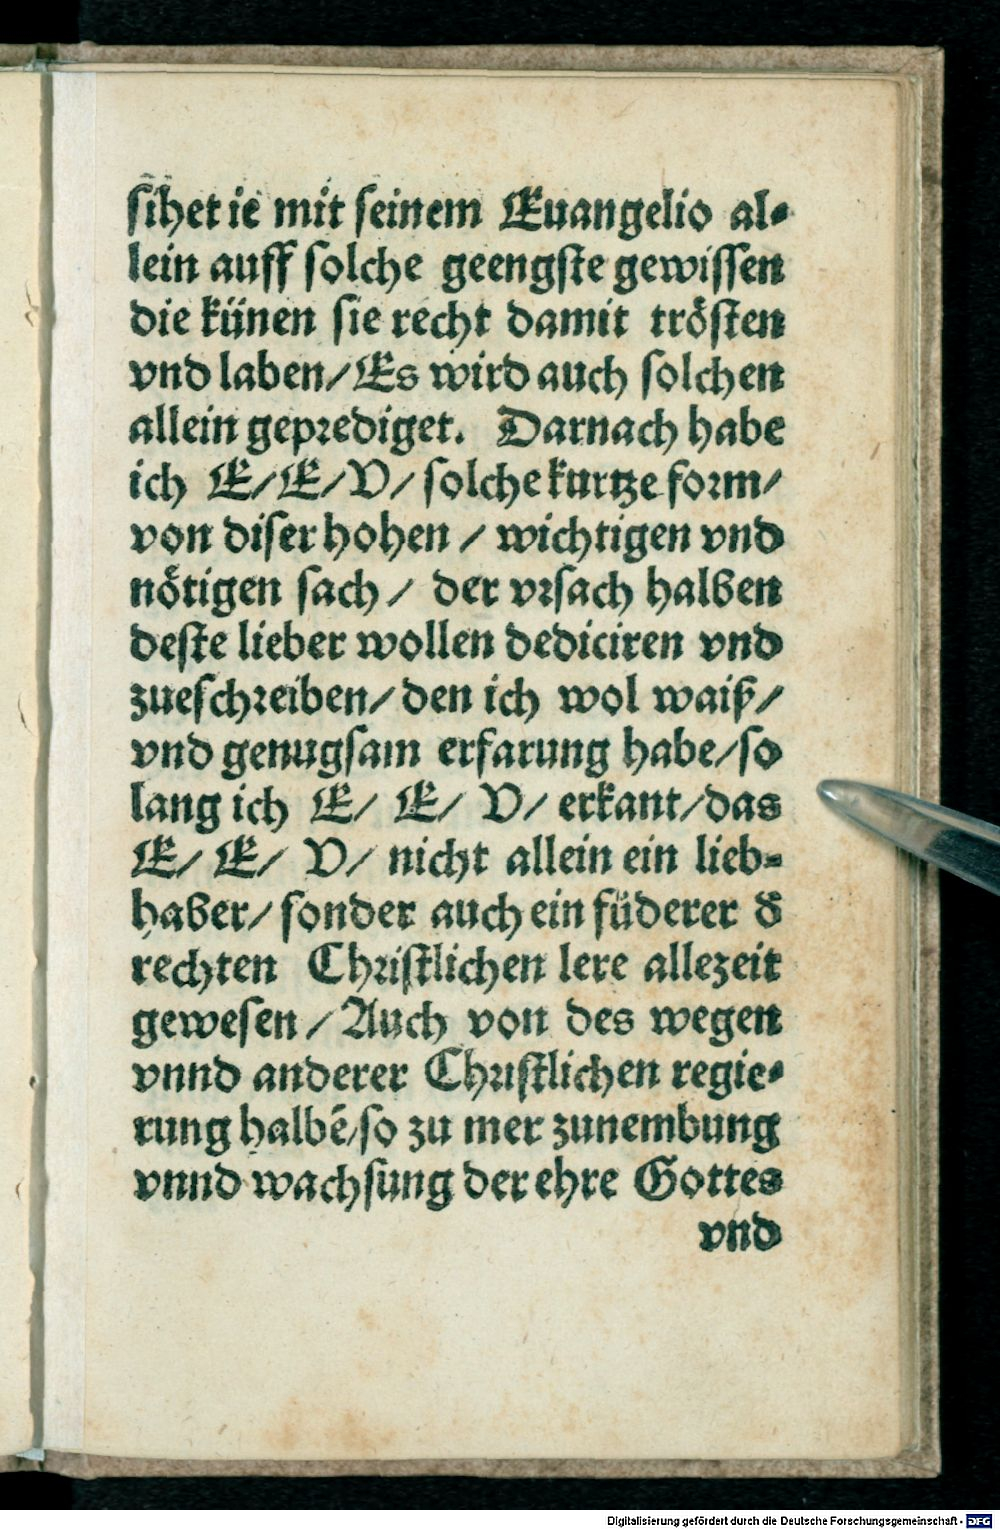 sihet ie mit seinem Euangelio al-
lein auff solche geengste gewissen
die künen sie recht damit trösten
vnd laben/Es wird auch solchen
allein geprediget. Darnach habe
ich E/E/V/solche kurtze form/
von diser hohen / wichtigen vnd
nötigen sach / der vrsach halben
deste lieber wollen dediciren vnd
zueschreiben/den ich wol waiß/
vnd genugsam erfarung habe/so
lang ich E/ E/ V/ erkant/das
E/ E/ V/ nicht allein ein lieb-
haber/sonder auch ein füderer d̕
rechten Christlichen lere allezeit
gewesen / Auch von des wegen
vnnd anderer Christlichen regie-
rung halbē/so zu mer zunembung
vnnd wachsung der ehre Gottes
vnd
Digitalisierung gefördert durch die Deutsche Forschungsgemeinschaft - DFG